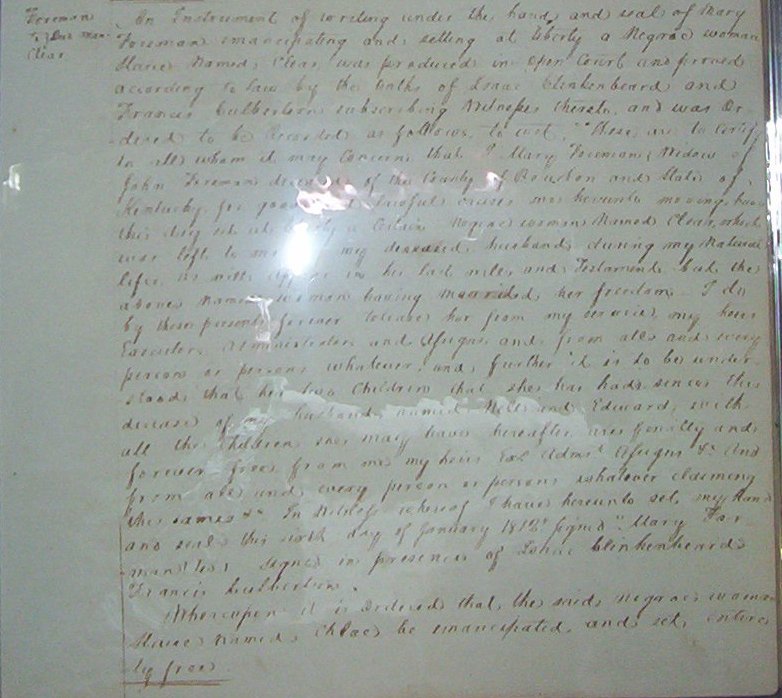 Foreman
To
Clear
An Instrument of writing under the hand and seal of Mary
Foreman emancipating and setting at liberty a Negroe woman
Slave Named Clear was produced in open Court and proved
according to law by the Oaths of Isaac Clinkenbeard and
Francis Culbertson subscribing Witnesses thereto, and was Or-
dered to be Recorded as follows to wit. "These are to Certify
to all whom it may Concern that I Mary Foreman Widow of
John Foreman of the County of Bourbon and State of
Kentucky for good lawful causes me hereunto moving have
this day a Certain Negroe woman Named Clear, which
was left to me my deceased husband during my Natural
life, as will in his last will and Testament but the
above named woman having her freedom I do
by these presents forever release her from my service, my heirs
Executors Administrators and Assigns and from all and every
person or persons whatever, and further it is to be under-
stood that her two Children that she has had since the
decease of my husband named and Edward, with
all the Children she may have hereafter are and
forever free from me my heirs Exs. Admrs. Assigns &c And
from all and every person or persons whatever claiming
the same &c In Witness whereof I have hereunto set my Hand
and seal this day of January 1812 signed "Mary For-
man signed in presence of Isaac Clinkenbeard
Francis Culbertson.
Whereupon it is Ordered that the said negroe woman
Slave Named Chloe be emancipated and set entire-
ly free.